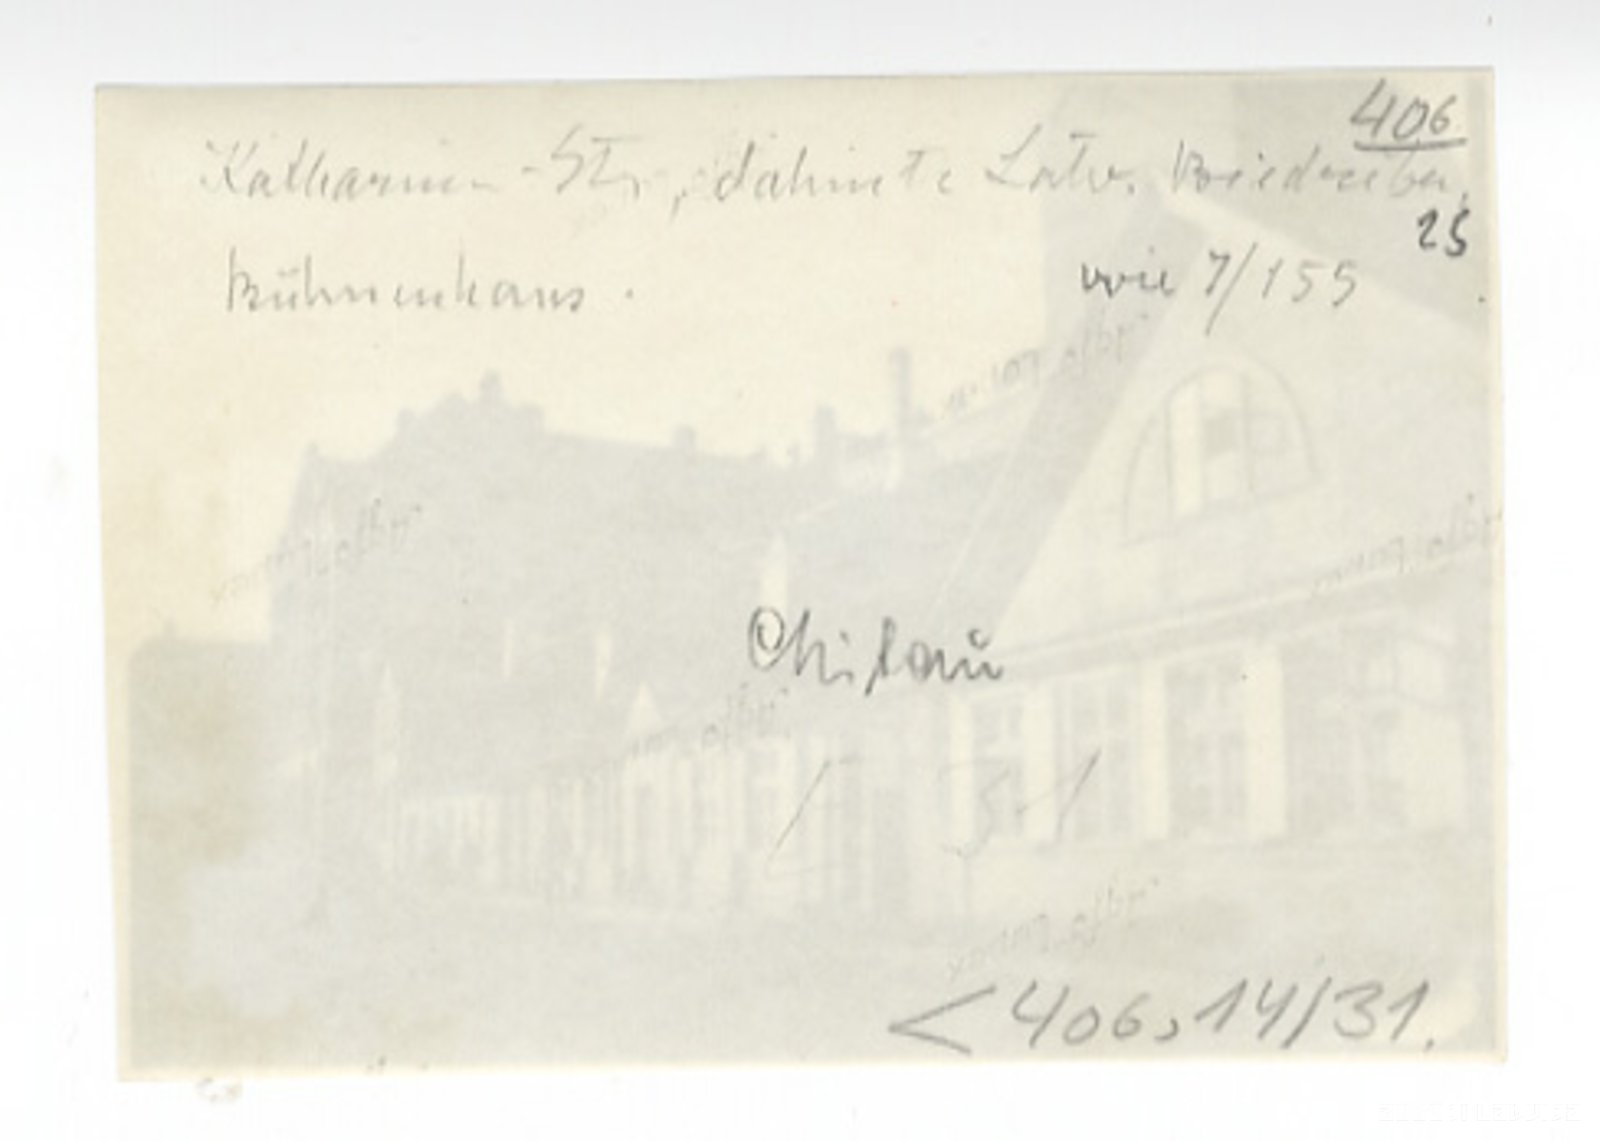 406
Katharinen-Str., dahinte Latv. Biedrība,
25
Bühnenhaus. wie 7/155
Mitau
< 406, 14/31.